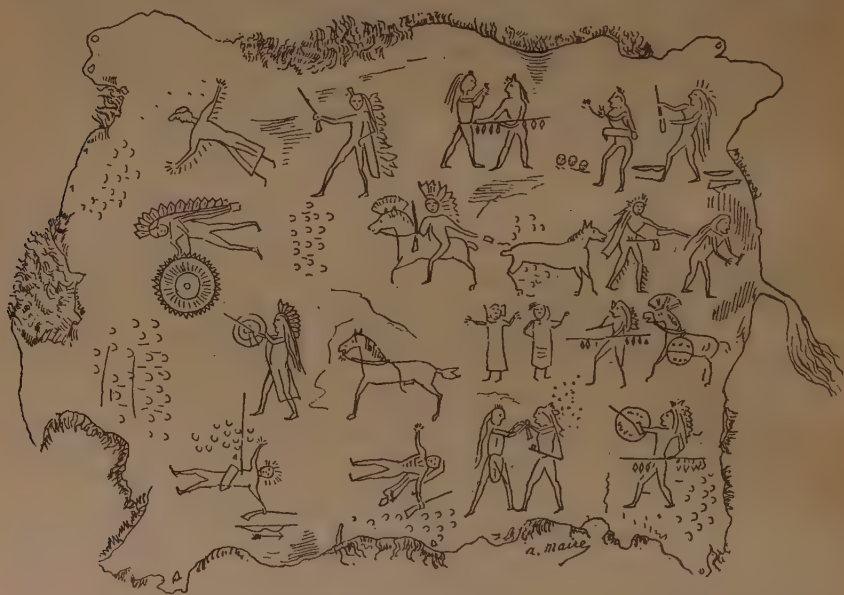 a. Maire